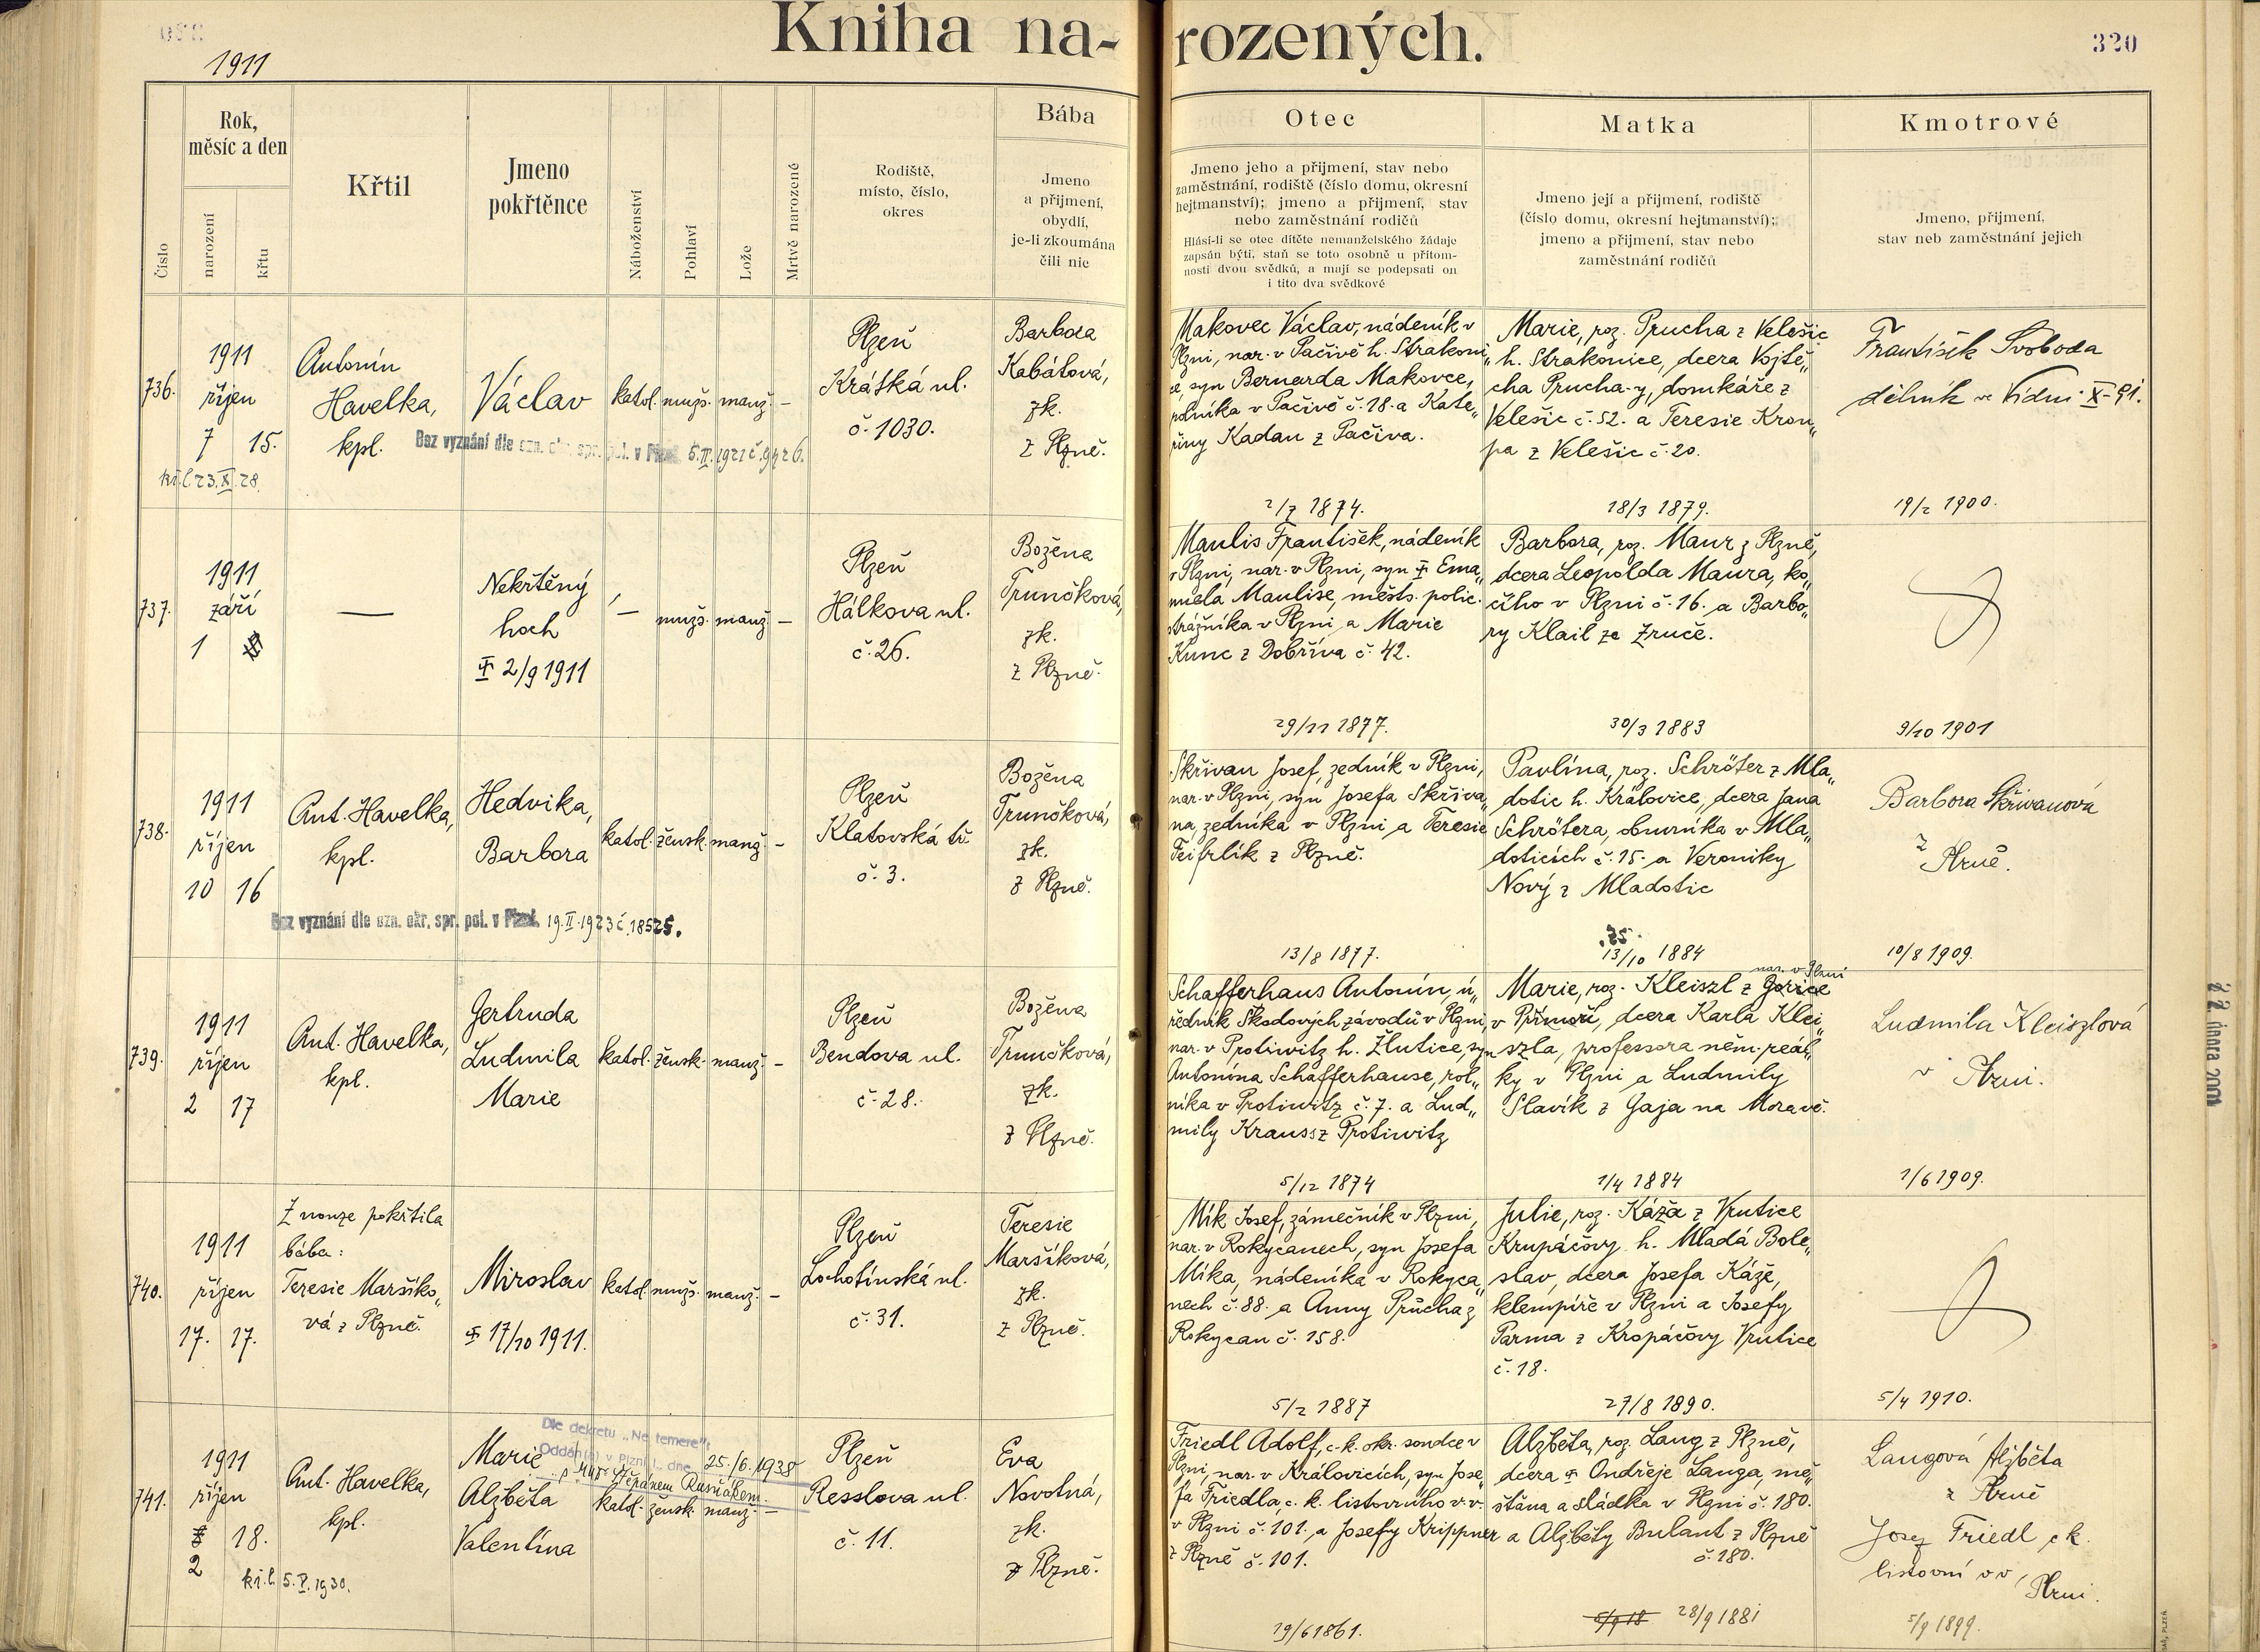 Kniha na-
rozených.
320
1911
Číslo
Rok,
měsíc a den
narození
křtu
Křtil
Jmeno
pokřtěnce
Náboženství
Pohlaví
Lože
Mrtvě narozené
Rodiště,
místo, číslo,
okres
Bába
Jmeno
a přijmení,
obydlí,
je-li zkoumána
čili nic
Otec
Jmeno jeho a přijmení, stav nebo
zaměstnání, rodiště (číslo domu, okresní
hejtmanství); jmeno a přijmení, stav
nebo zaměstnání rodičů
Hlásí-li se otec dítěte nemanželského žádaje
zapsán býti, staň se toto osobně u přítom-
nosti dvou svědků, a mají se podepsati on
i tito dva svědkové
Matka
Jmeno její a přijmení, rodiště
(číslo domu, okresní hejtmanství);
jmeno a přijmení, stav nebo
zaměstnání rodičů
Kmotrové
Jmeno, přijmení,
stav neb zaměstnání jejich
736.
1911
říjen
7 15.
kř.l. 23.X.28.
Antonín
Havelka,
kpl.
Václav
katol. mužs. manž. –
Bez vyznání dle ozn. okr. spr. pol. v Plzni 5.II.1921 č. 9426.
Plzeň
Krátká ul.
č. 1030.
Barbora
Kabátová,
zk.
z Plzně.
Makovec Václav, nádeník v
Plzni, nar. v Pačivě h. Strakoni„
ce, syn Bernarda Makovce,
rolníka v Pačivě č. 18. a Kate„
řiny Kadan z Pačiva.
2/7 1874.
Marie, roz. Prucha z Velešic
h. Strakonice, dcera Vojtě„
cha Prucha-y, domkáře z
Velešic č. 52. a Teresie Krou„
pa z Velešic č. 20.
18/3 1879.
František Svoboda
dělník ve Vídni X-91.
19/2 1900.
737.
1911
září
1
—
Nekřtěný
hoch
2/9 1911
– mužs. manž. –
Plzeň
Hálkova ul.
č. 26.
Božena
Trunčková,
zk.
z Plzně.
Maulis František, nádeník
v Plzni, nar. v Plzni, syn Ema„
nuela Maulise, měšts. polic.
strážníka v Plzni a Marie
Kunc z Dobříva č. 42.
29/11 1877.
Barbora, roz. Maur z Plzně,
dcera Leopolda Maura, ko„
čího v Plzni č. 16. a Barbo„
ry Klail ze Zruče.
30/3 1883
9/10 1901
738.
1911
říjen
10 16
Ant. Havelka,
kpl.
Hedvika,
Barbora
katol. žensk. manž. –
Bez vyznání dle ozn. okr. spr. pol. v Plzni 19.II.1923 č. 18525.
Plzeň
Klatovská tř.
č. 3.
Božena
Trunčková,
zk.
z Plzně.
Skřivan Josef, zedník v Plzni,
nar. v Plzni, syn Josefa Skřiva„
na, zedníka v Plzni a Teresie
Feifrlík z Plzně.
13/8 1877.
Pavlína, roz. Schröter z Mla„
dotic h. Kralovice, dcera Jana
Schrötera, obuvníka v Mla„
doticích č. 15. a Veroniky
Nový z Mladotic
25.
13/10 1884
Barbora Skřivanová
z
Plzně.
10/8 1909.
739.
1911
říjen
2 17
Ant. Havelka,
kpl.
Gertruda
Ludmila
Marie
katol. žensk. manž. –
Plzeň
Bendova ul.
č. 28.
Božena
Trunčková,
zk.
z Plzně.
Schafferhaus Antonín, ú„
ředník Škodových závodů v Plzni,
nar. v Protiwitz h. Žlutice, syn
Antonína Schafferhause, rol„
níka v Protiwitz č. 7. a Lud„
mily Krauss z Protiwitz
5/12 1874
nar. v Plzni
Marie, roz. Kleiszl z Gorice
v Přímoří, dcera Karla Klei„
szla, professora něm. reál„
ky v Plzni a Ludmily
Slavík z Gaja na Moravě.
1/4 1884
Ludmila Kleiszlová
v Plzni.
1/6 1909.
740.
1911
říjen
17. 17.
Z nouze pokřtila
bába:
Teresie Maršíko„
vá z Plzně.
Miroslav
17/10 1911.
katol. mužs. manž. –
Plzeň
Lochotínská ul.
č. 31.
Teresie
Maršíková,
zk.
z Plzně.
Mík Josef, zámečník v Plzni,
nar. v Rokycanech, syn Josefa
Míka, nádeníka v Rokyca„
nech č. 88. a Anny Průcha z
Rokycan č. 158.
5/2 1887
Julie, roz. Káža z Vrutice
Krupáčovy h. Mladá Bole„
slav, dcera Josefa Káže,
klempíře v Plzni a Josefy
Parma z Kropáčovy Vrutice
č. 18.
27/8 1890.
5/4 1910.
741.
1911
říjen
18.
2
kř.l. 5.V.1930.
Ant. Havelka,
kpl.
Marie
Alžběta
Valentina
Dle dekretu „Ne temere":
Oddán(a) v Plzni I. dne 25./6. 1938
Štěpánem Rusňákem.
katol. žensk. manž. –
Plzeň
Resslova ul.
č. 11.
Eva
Novotná,
zk.
z Plzně.
Friedl Adolf, c. k. okr. soudce v
Plzni, nar. v Královicích, syn Jose„
fa Friedla, c. k. listovního v. v.
v Plzni č. 101. a Josefy Krippner
z Plzně č. 101.
19/6 1861.
Alžběta, roz. Lang z Plzně,
dcera Ondřeje Langa, mě„
šťana a sládka v Plzni č. 180.
a Alžběty Bulant z Plzně
č. 180.
5/9 18 28/9 1881
Langová Alžběta
z Plzně
Josef Friedl ck.
listovní vv,
Plzni.
5/9 1899.
22. února 2001